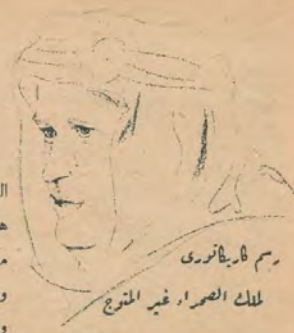 رسم كاريكاتورى
لملك الصحراء غير المتوج